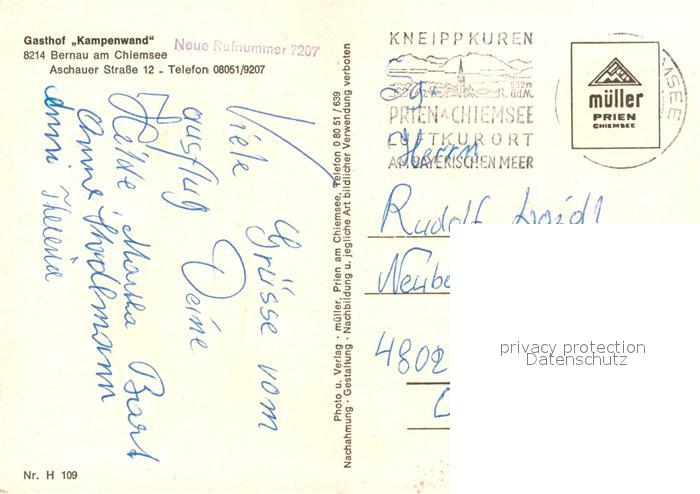 Gasthof „Kampenwand"
8214 Bernau am Chiemsee
Aschauer Straße 12 - Telefon 08051/9207
Neue Rufnummer 7207
Viele Grüsse vom
ausflug Deine
Heide Martha
Anni Theresia
Nr. H 109
Photo u. Verlag · müller, Prien am Chiemsee, Telefon 0 80 51 / 639
Nachahmung · Gestaltung · Nachbildung u. jegliche Art bildlicher Verwendung verboten
KNEIPPKUREN
PRIEN A. CHIEMSEE
LUFTKURORT
AM BAYERISCHEN MEER
müller
PRIEN
CHIEMSEE
MSEE
Sg.
Herrn
Rudolf
4802
privacy protection
Datenschutz